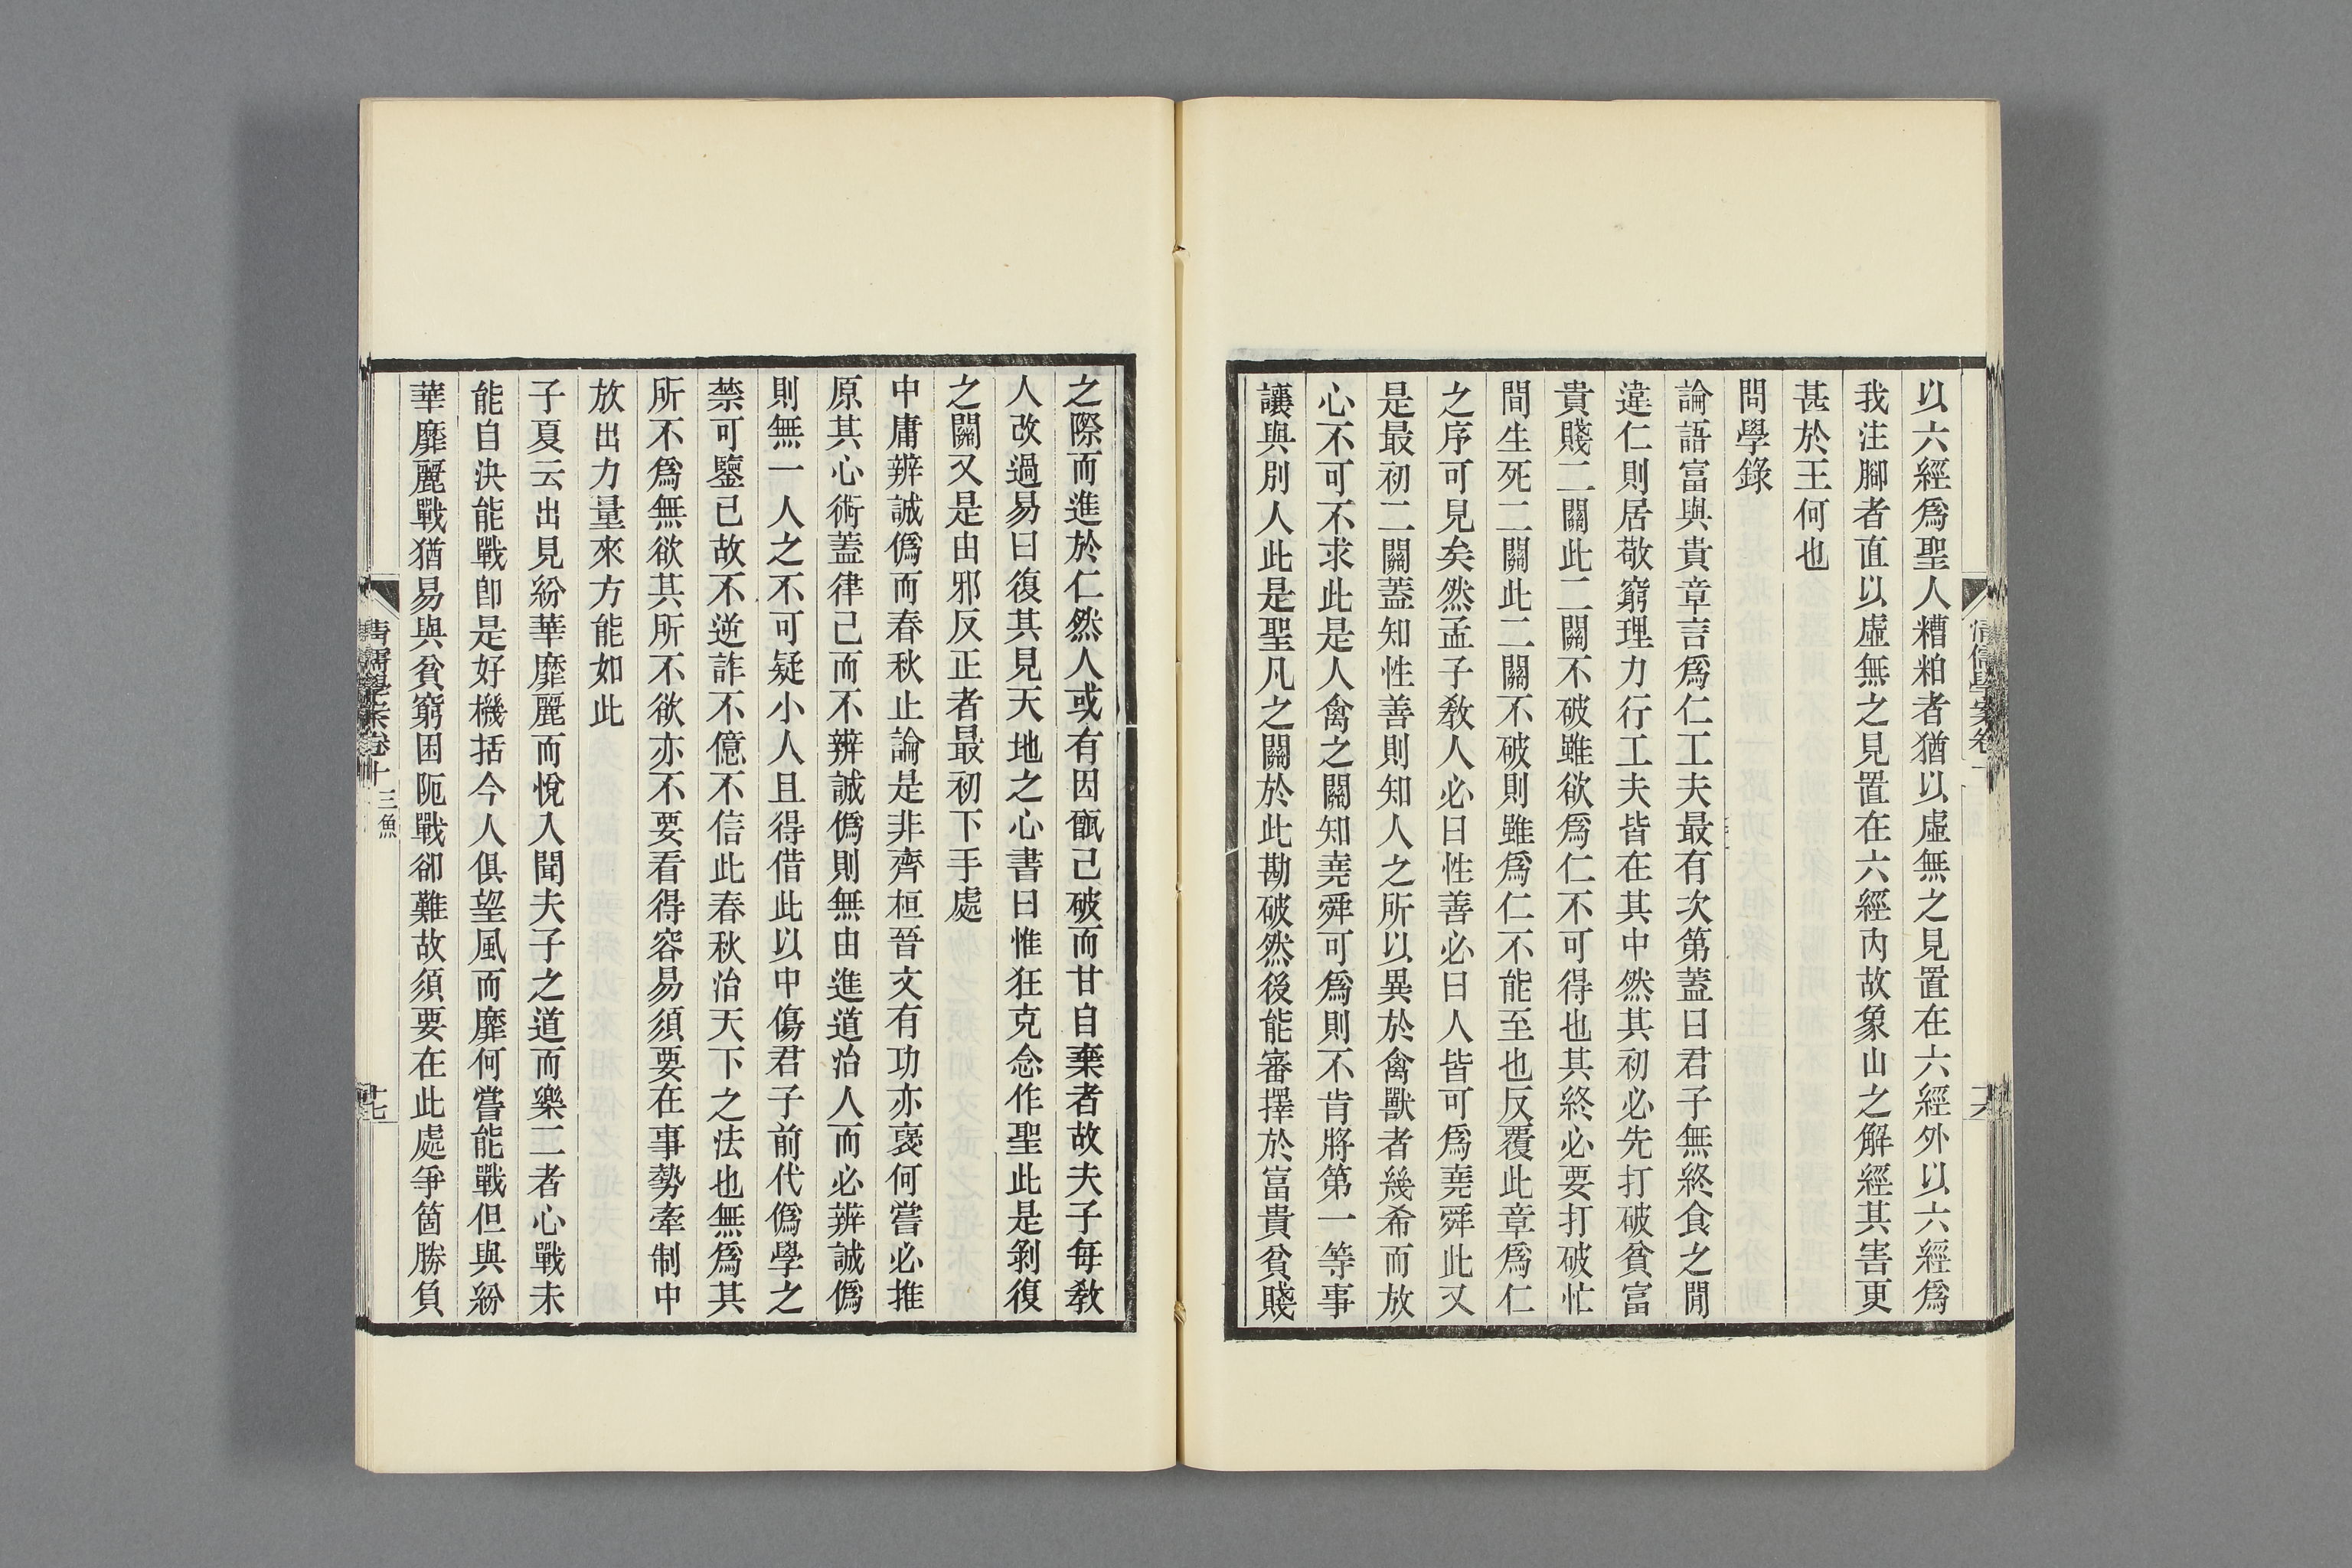 以六經爲聖人糟粕者猶以虛無之見置在六經外以六經爲
我注腳者直以虛無之見置在六經內故象山之解經其害更
甚於王何也
問學錄
論語富與貴章言爲仁工夫最有次第蓋曰君子無終食之閒
違仁則居敬窮理力行工夫皆在其中然其初必先打破貧富
貴賤二關此二關不破雖欲爲仁不可得也其終必要打破忙
間生死二關此二關不破則雖爲仁不能至也反覆此章爲仁
之序可見矣然孟子敎人必曰性善必曰人皆可爲堯舜此又
是最初二關蓋知性善則知人之所以異於禽獸者幾希而放
心不可不求此是人禽之關知堯舜可爲則不肯將第一等事
讓與別人此是聖凡之關於此勘破然後能審擇於富貴貧賤
之際而進於仁然人或有因甑已破而甘自棄者故夫子每敎
人改過易曰復其見天地之心書曰惟狂克念作聖此是剝復
之關又是由邪反正者最初下手處
中庸辨誠僞而春秋止論是非齊桓晉文有功亦褒何嘗必推
原其心術蓋律己而不辨誠僞則無由進道治人而必辨誠僞
則無一人之不可疑小人且得借此以中傷君子前代僞學之
禁可鑒已故不逆詐不億不信此春秋治天下之法也無爲其
所不爲無欲其所不欲亦不要看得容易須要在事勢牽制中
放出力量來方能如此
子夏云出見紛華靡麗而悅入聞夫子之道而樂二者心戰未
能自決能戰卽是好機括今人俱望風而靡何嘗能戰但與紛
華靡麗戰猶易與貧窮困阨戰卻難故須要在此處爭箇勝負
清儒學案卷十 三魚
十七